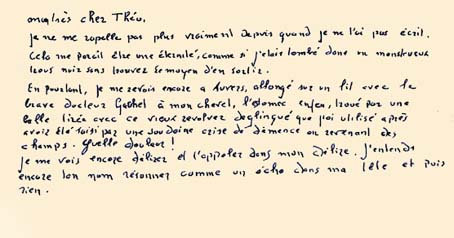 mon très cher Théo,
je ne me rapelle pas plus vraiment depuis quand je ne t'ai pas écrit.
Cela me parait être une éternité, comme si j'étais tombé dans un monstrueux
trou noir sans trouver le moyen d'en sortir.
En pourtant, je me revois encore a Auvers, allongé sur un lit avec le
brave docteur Gachet à mon chevet, l'estomac, enfin, troué par une
balle tirée avec ce vieux revolver déglingué que j'ai utilisé après
avoir été saisi par une soudaine crise de démence en revenant des
champs. Quelle douleur!
je me vois encore délirer et t'appeler dans mon délire. J'entends
encore ton nom résonner comme un écho dans ma tête et puis
rien.